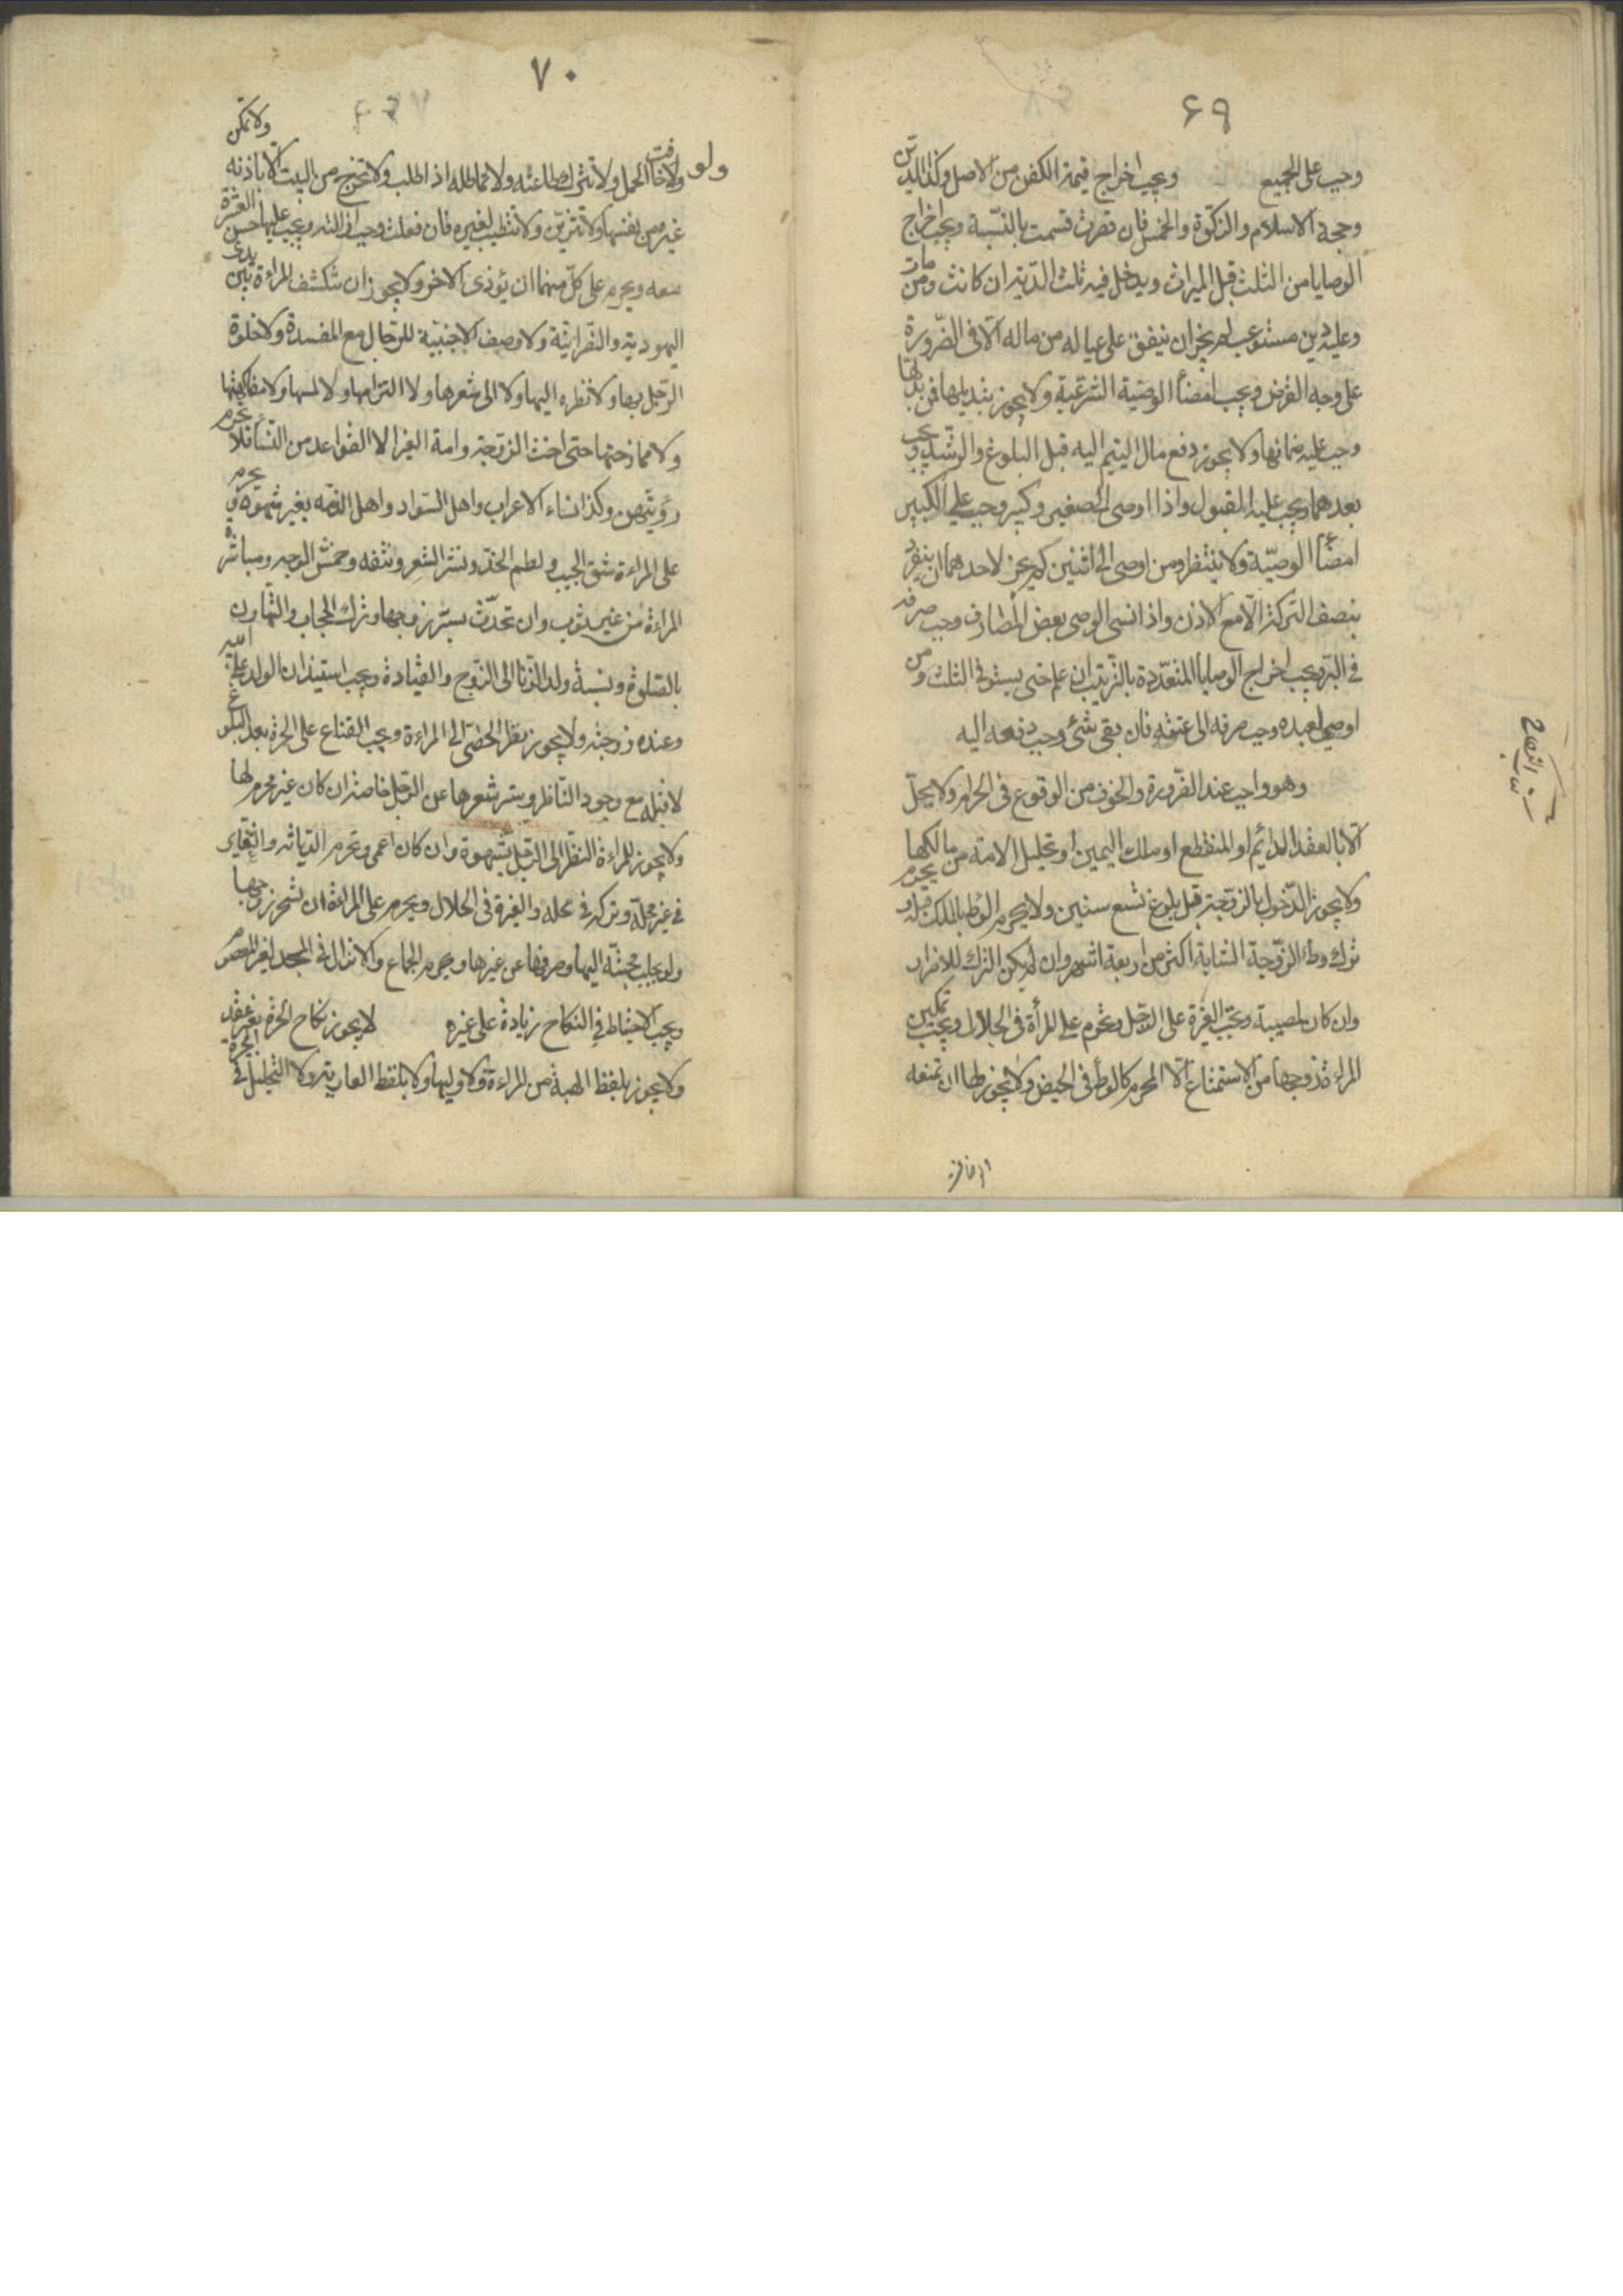 ۶۹
وجب على الجميع ويجب اخراج قيمة الكفن من الاصل وكذا الدين
وحجة الاسلام والزكوة والخمس فان قصرت قسمت بالنسبة ويجب اخراج
الوصايا من الثلث قبل الميراث ويدخل فيه ثلث الدية ان كانت ومن مات
وعليه دين مستوعب لم يجز ان ينفق على عياله من ماله الا فى الضرورة
على وجه القرض ويجب امضأ الوصية الشرعية ولا يجوز تبديلها فمن بدلها
وجب عليه ضمانها ولا يجوز دفع مال اليتيم اليه قبل البلوغ والرشد ويجب
بعدهما ويجب عليه القبول واذا اوصى الى صغير وكبير وجب على الكبير
امضأ الوصية ولا ينتظر ومن اوصى الى اثنين لم يجز لاحدهما ان ينفرد
بنصف التركة الا مع الاذن واذا نسى الوصى بعض المصارف وجب صرفه
فى البر ويجب اخراج الوصايا المتعددة بالترتيب ان علم حتى يستوفى الثلث ومن
اوصى لعبده وجب صرفه الى عتقه فان بقى شئ وجب دفعه اليه
وهو واجب عند الضرورة والخوف من الوقوع فى الحرام ولا يحل
الا بالعقد الدائم او المنقطع او ملك اليمين او تحليل الامة من مالكها
ولا يجوز الدخول بالزوجة قبل بلوغ تسع سنين ولا يحرم الوطؤ بالملك قبله ويحرم
ترك وطء الزوجة الشابة اكثر من اربعة اشهر وان لم يكن الترك للاضرار
وان كان لمصيبة وتجب الغيرة على الرجل وتحرم على المرأة فى الحلال ويجب تمكين
المراءة زوجها من الاستمتاع الا المحرم كالوطئ فى الحيض ولا يجوز لها ان تمنعه
النكاح
۷۰
ولو
ولا خافت الحمل ولا تترك طاعته ولا تماطله اذا طلب ولا تخرج من البيت الا باذنه ولا تمكن
غيره من نفسها ولا تتزين ولا تتطيب لغيره فان فعلت وجب ازالته ويجب عليها حسن العشرة
معه ويحرم على كل منهما ان يؤذى الاخر ولا يجوز ان تنكشف المراءة بين يدى
اليهودية والنصرانية ولا وصف الاجنبية للرجال مع المفسدة ولا خلوة
الرجل بها ولا نظره اليها ولا الى شعرها ولا التزامها ولا لمسها ولا مفاكهتها
ولا ممازحتها حتى اخت الزوجة وامة الغير الا القواعد من النسأ فلا تحرم
رؤيتهن وكذا نساء الاعراب واهل السواد واهل الذمه بغير شهوة ويحرم
على المراءة شق الجيب ولطم الخد ونشر الشعر ونتفه وخمش الوجه ومباشرة
المراءة من غير ثوب وان تحدث بسر زوجها وترك الحجاب والتهاون
بالصلوة ونسبة ولد الزنا الى الزوج والقيادة ويجب استيذان الولد على ابيه
وعنده زوجته ولا يجوز نظر الخصى الى المراءة ويجب القناع على الحرة بعد البلوغ
لا قبله مع وجود الناظر وستر شعرها عن الرجل خاصة ان كان غير محرم لها
ولا يجوز للمراءة النظر الى الرجل بشهوة وان كان اعمى وتحرم الدياثه والتغاير
فى غير محله وتركه فى محله والغيرة فى الحلال ويحرم على المراءة ان تسحر زوجها
ولو بجلب محبته اليها وصرفها عن غيرها ويحرم الجماع والانزال فى المسجد لغير المعصوم
ويجب الاحتياط فى النكاح زيادة على غيره لا يجوز نكاح الحرة بغير عقد
ولا يجوز بلفظ الهبة من المراءة ولا وليها ولا بلفظ العارية ولا التحليل فى الحرة